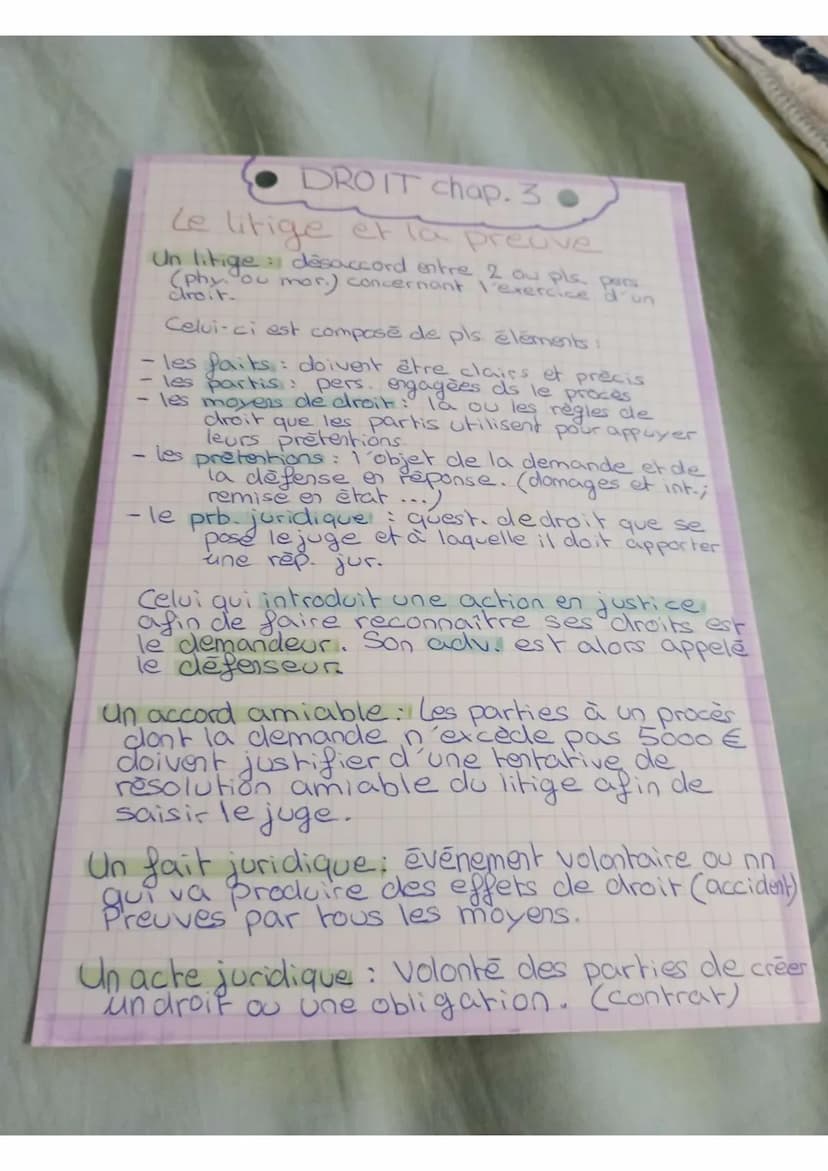 DROIT chap. 3
Le litige et la preuve
Un litige : désaccord entre 2 ou pls. pers.
(phy. ou mor.) concernant l'exercice d'un
droit.
Celui-ci est composé de pls éléments :
- les faits : doivent être clairs et précis
- les partis : pers. engagées ds le procès
- les moyens de droit : la ou les règles de
droit que les partis utilisent pour appuyer
leurs prétentions.
- les prétentions : l'objet de la demande et de
la défense en réponse. (domages et int.;
remise en état ...)
- le prb. juridique : quest. de droit que se
pose le juge et à laquelle il doit apporter
une rép. jur.
Celui qui introduit une action en justice
afin de faire reconnaître ses droits est
le demandeur. Son adv. est alors appelé
le défenseur.
Un accord amiable : Les parties à un procès
dont la demande n'excède pas 5000 €
doivent justifier d'une tentative de
résolution amiable du litige afin de
saisir le juge.
Un fait juridique : événement volontaire ou nn
qui va produire des effets de droit (accident)
Preuves par tous les moyens.
Un acte juridique : volonté des parties de créer
un droit ou une obligation. (contrat)